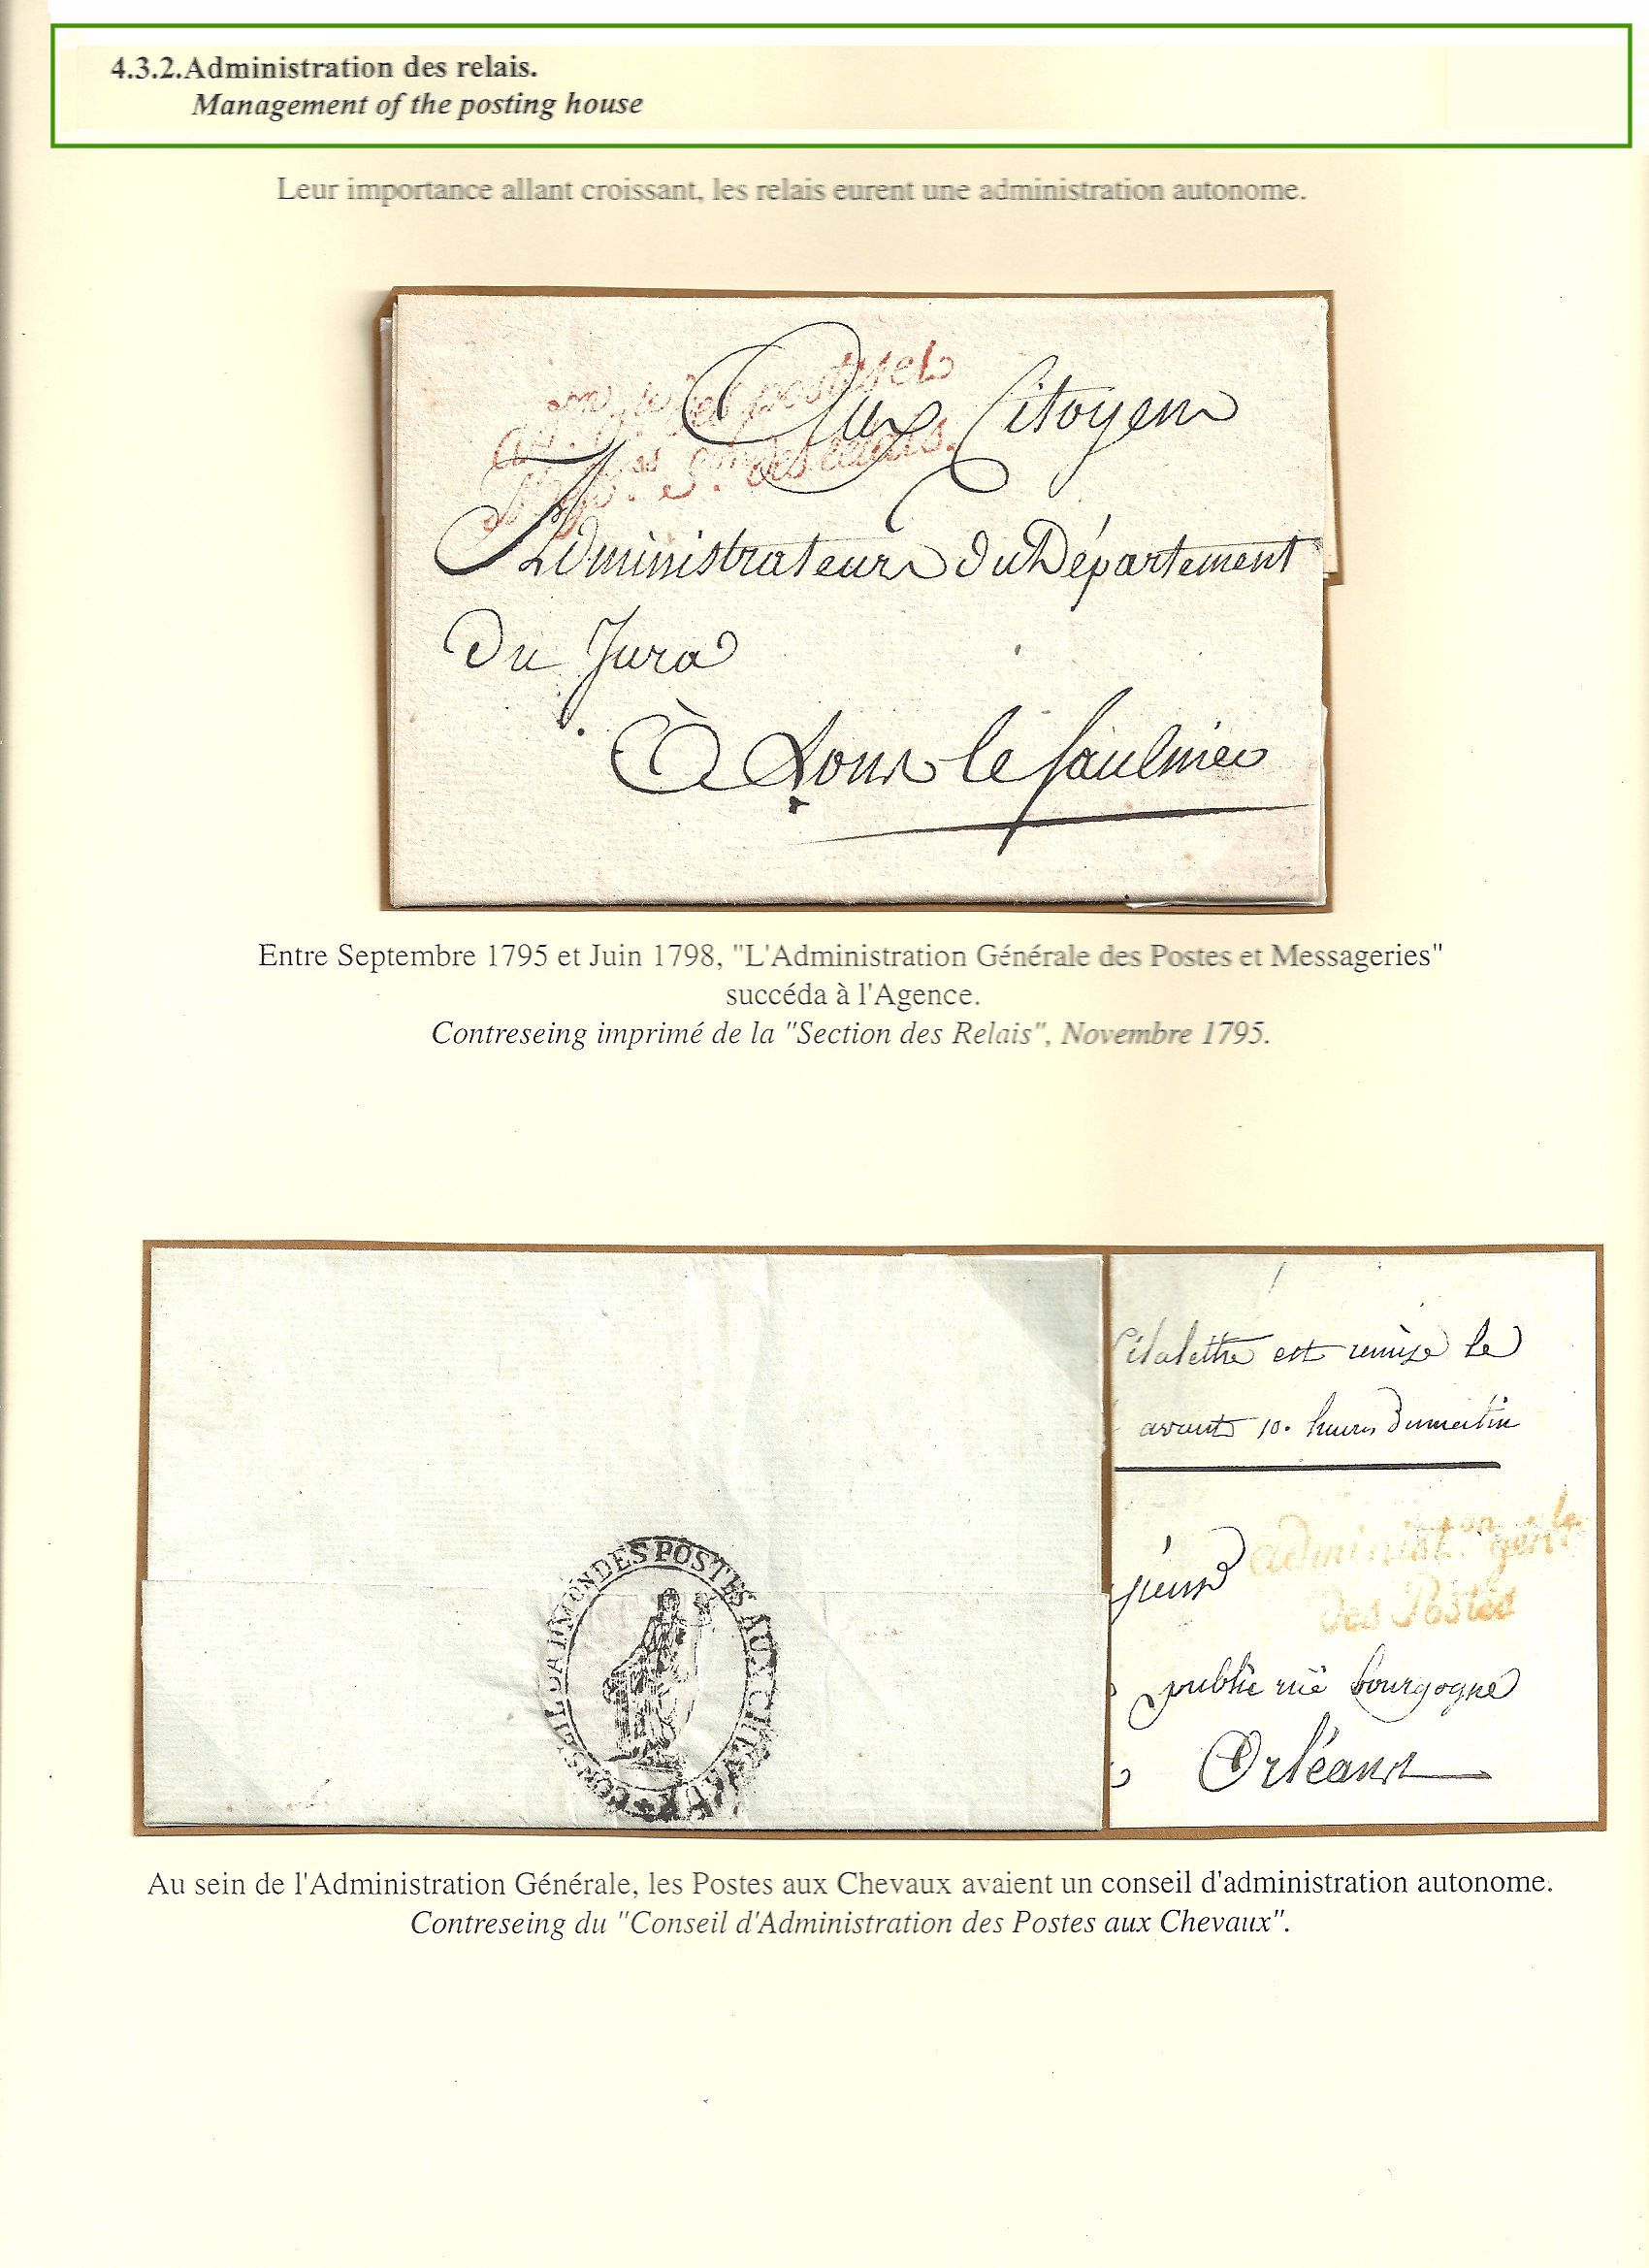 4.3.2.Administration des relais.
Management of the posting house
Leur importance allant croissant, les relais eurent une administration autonome.
Aux Citoyens
Administrateurs du Département
du Jura
À Lons le Saulnier
des relais.
Entre Septembre 1795 et Juin 1798, "L'Administration Générale des Postes et Messageries"
succéda à l'Agence.
Contreseing imprimé de la "Section des Relais", Novembre 1795.
CONSEIL D'ADMON DES POSTES AUX CHEVAUX
est remise le
avant 10. heures du matin
administ.on gén.le
des Postes
public rüe bourgogne
Orléans
Au sein de l'Administration Générale, les Postes aux Chevaux avaient un conseil d'administration autonome.
Contreseing du "Conseil d'Administration des Postes aux Chevaux".